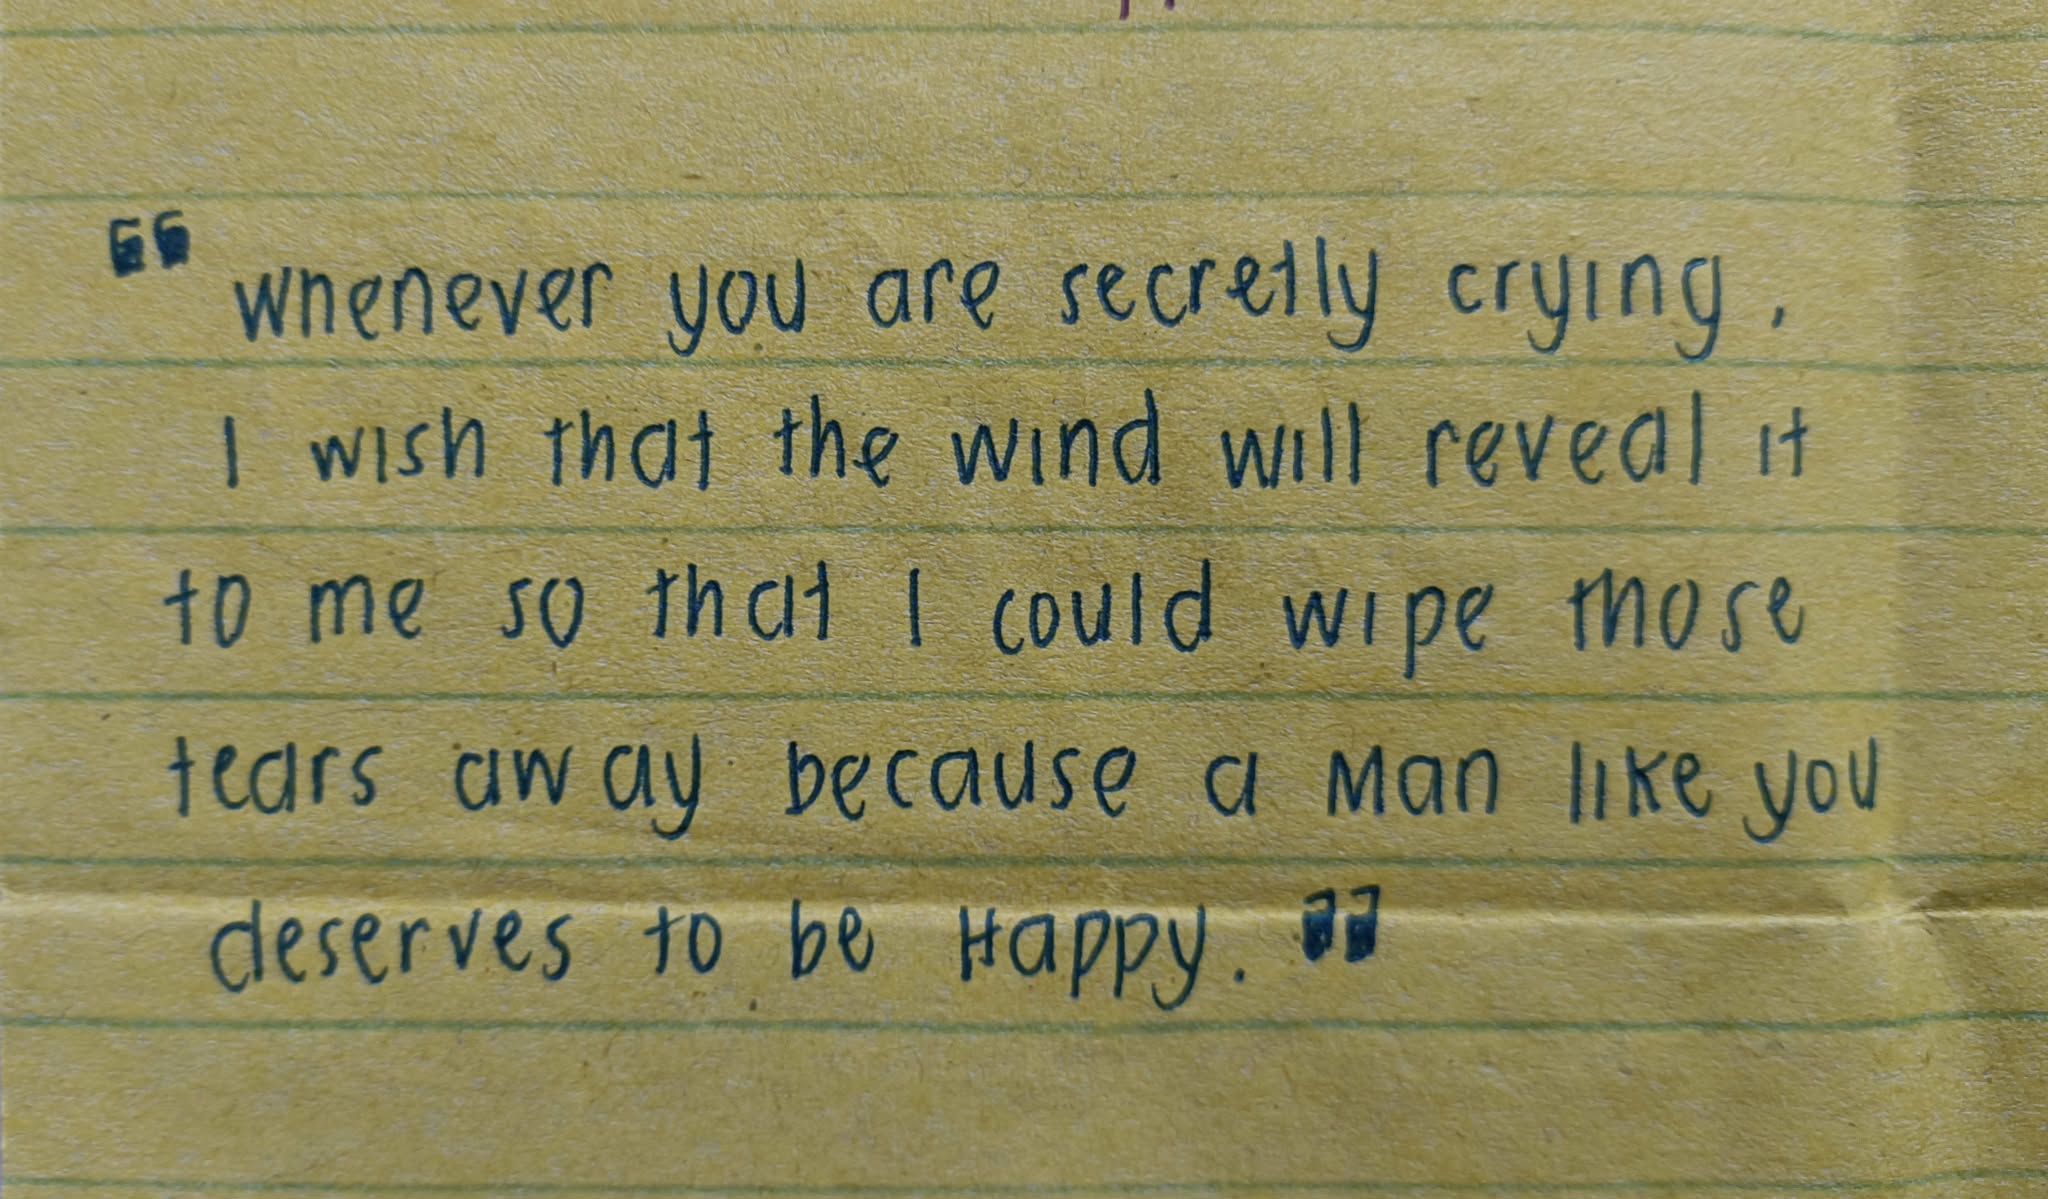 “whenever you are secretly crying,
I wish that the wind will reveal it
to me so that I could wipe those
tears away because a Man like you
deserves to be Happy.”